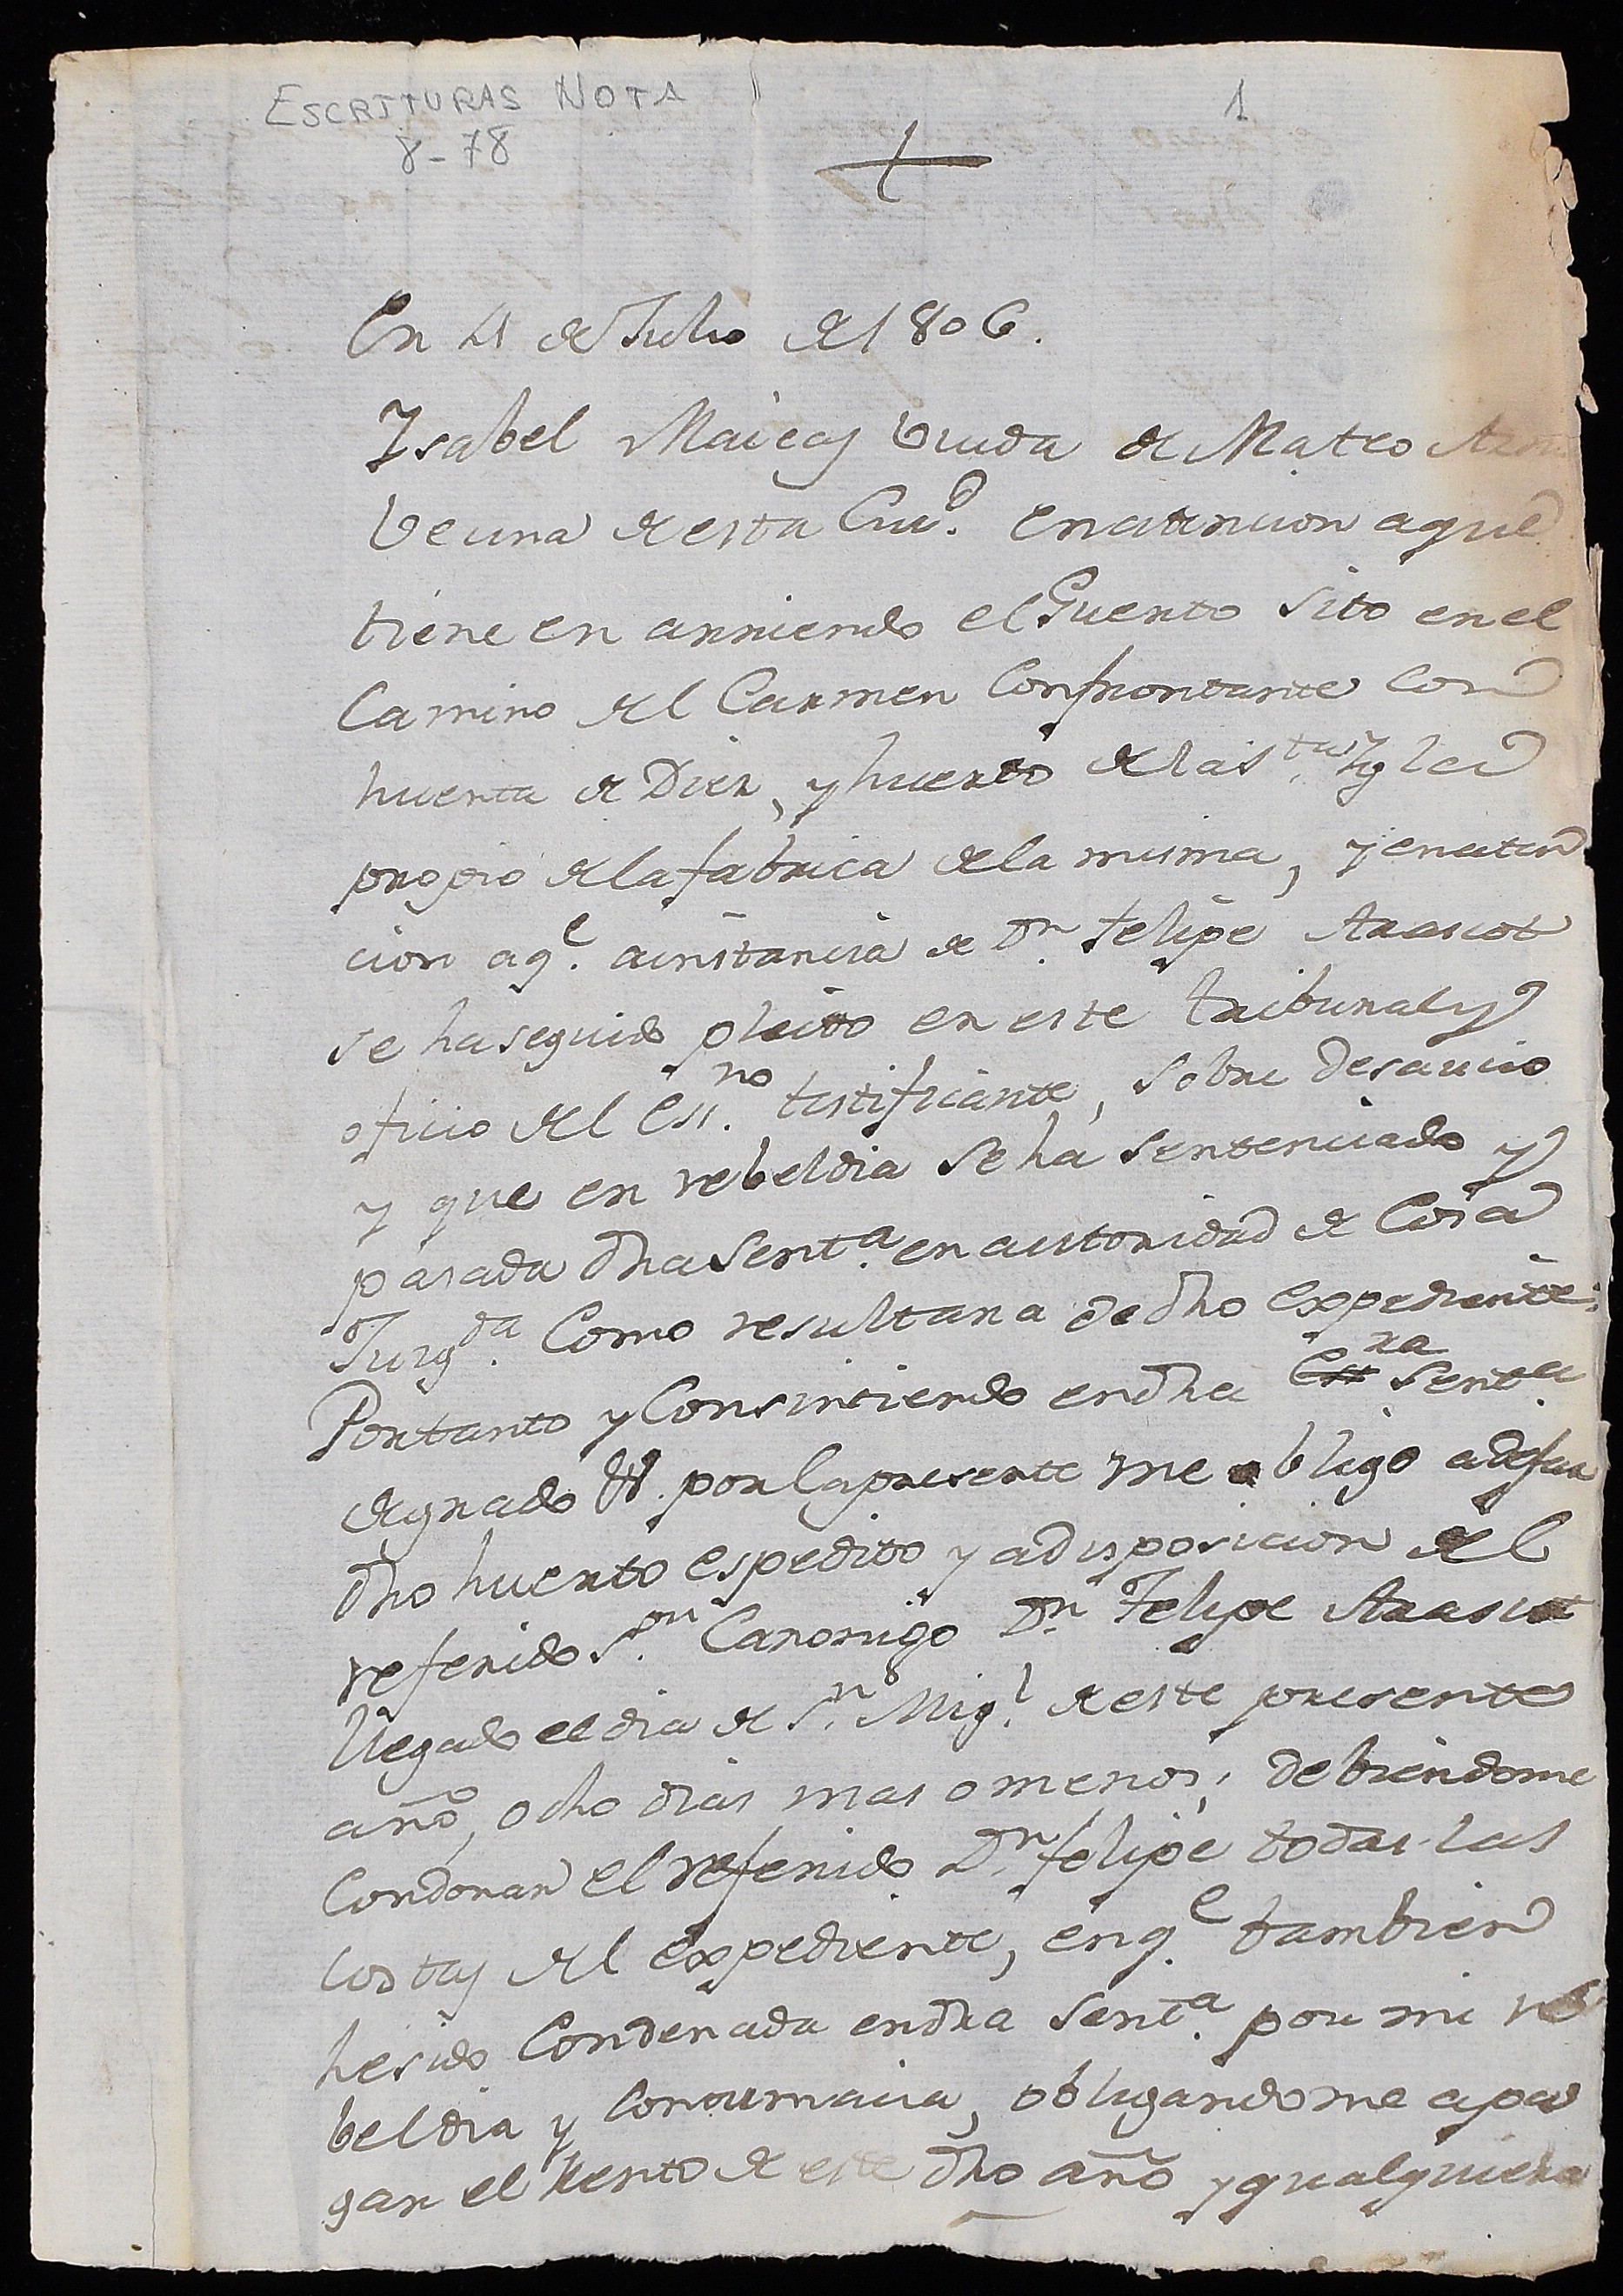 ESCRITURAS NOTA
8-78
1
En 11 de Julio de 1806.
Ysabel Maicas Viuda de Mateo
Vecina de esta Ciu.d en atencion a que
tiene en arriendo el Guerto sito en el
Camino del Carmen Confrontante con
huerta de Diex, y huerto de la S.ta Yglea
propio de la fabrica de la misma, y en aten
cion a q.e a instancia de Dn. Felipe Arascot
se ha seguido pleito en este tribunal y
oficio del Ess.no testificante, sobre desaucio
y que en rebeldia se ha sentenciado y
pasada dha Sent.a en autoridad de Cosa
Juzg.da Como resultara de dho expediente:
Por tanto y Consintiendo en dha Sent.a
de grado &. por la presente me obligo a dejar
dho huerto espedito y a disposicion del
referido S.or Canonigo Dn. Felipe Arascot
llegado el dia de S.n Mig.l de este presente
año, ocho dias mas o menos; debiendome
Condonar el referido Dn. felipe todas las
costas del expediente, en q.e tambien
he sido Condenada en dha Sent.a por mi re
beldia y Contumacia, obligandome a pa
gar el Rento de este dho año y qualquiera